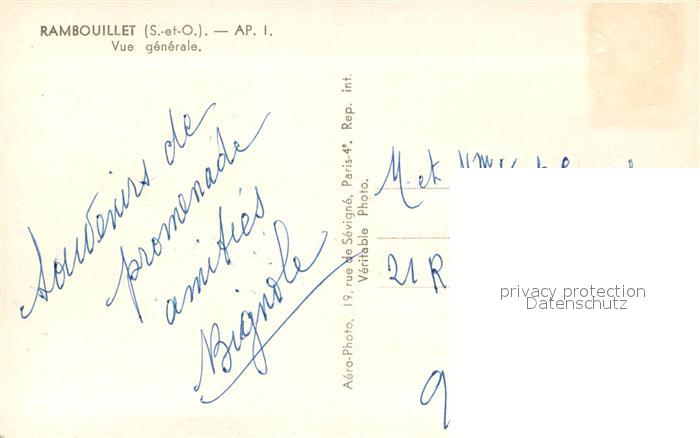 RAMBOUILLET (S.-et-O.). — AP. 1.
Vue générale.
Souvenirs de
promenade
amitiés
Bignole
Aéro-Photo, 19, rue de Sévigné, Paris-4e. Rep. int.
Véritable Photo.
M. et Mme
21 R
9
privacy protection
Datenschutz